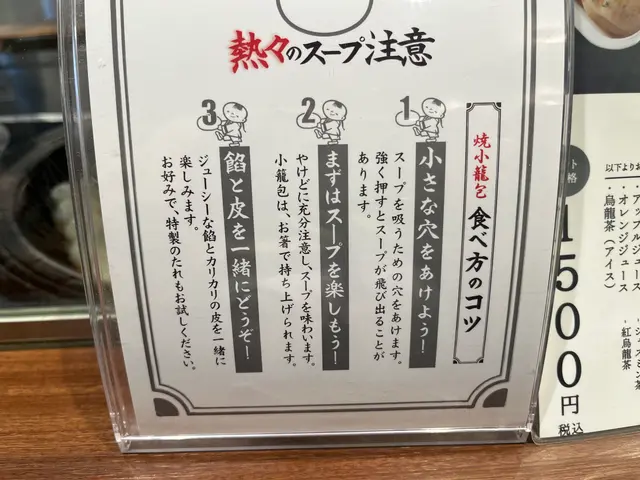 熱々のスープ注意
焼小籠包 食べ方のコツ
1
小さな穴をあけよう!
スープを吸うための穴をあけます。
強く押すとスープが飛び出ることが
あります。
2
まずはスープを楽しもう!
やけどに充分注意し、スープを味わいます。
小籠包は、お箸で持ち上げられます。
3
餡と皮を一緒にどうぞ!
ジューシーな餡とカリカリの皮を一緒に
楽しみます。
お好みで、特製のたれもお試しください。
以下よりお
・オレンジジュース
・烏龍茶(アイス)
・紅烏龍茶
1500円
税込